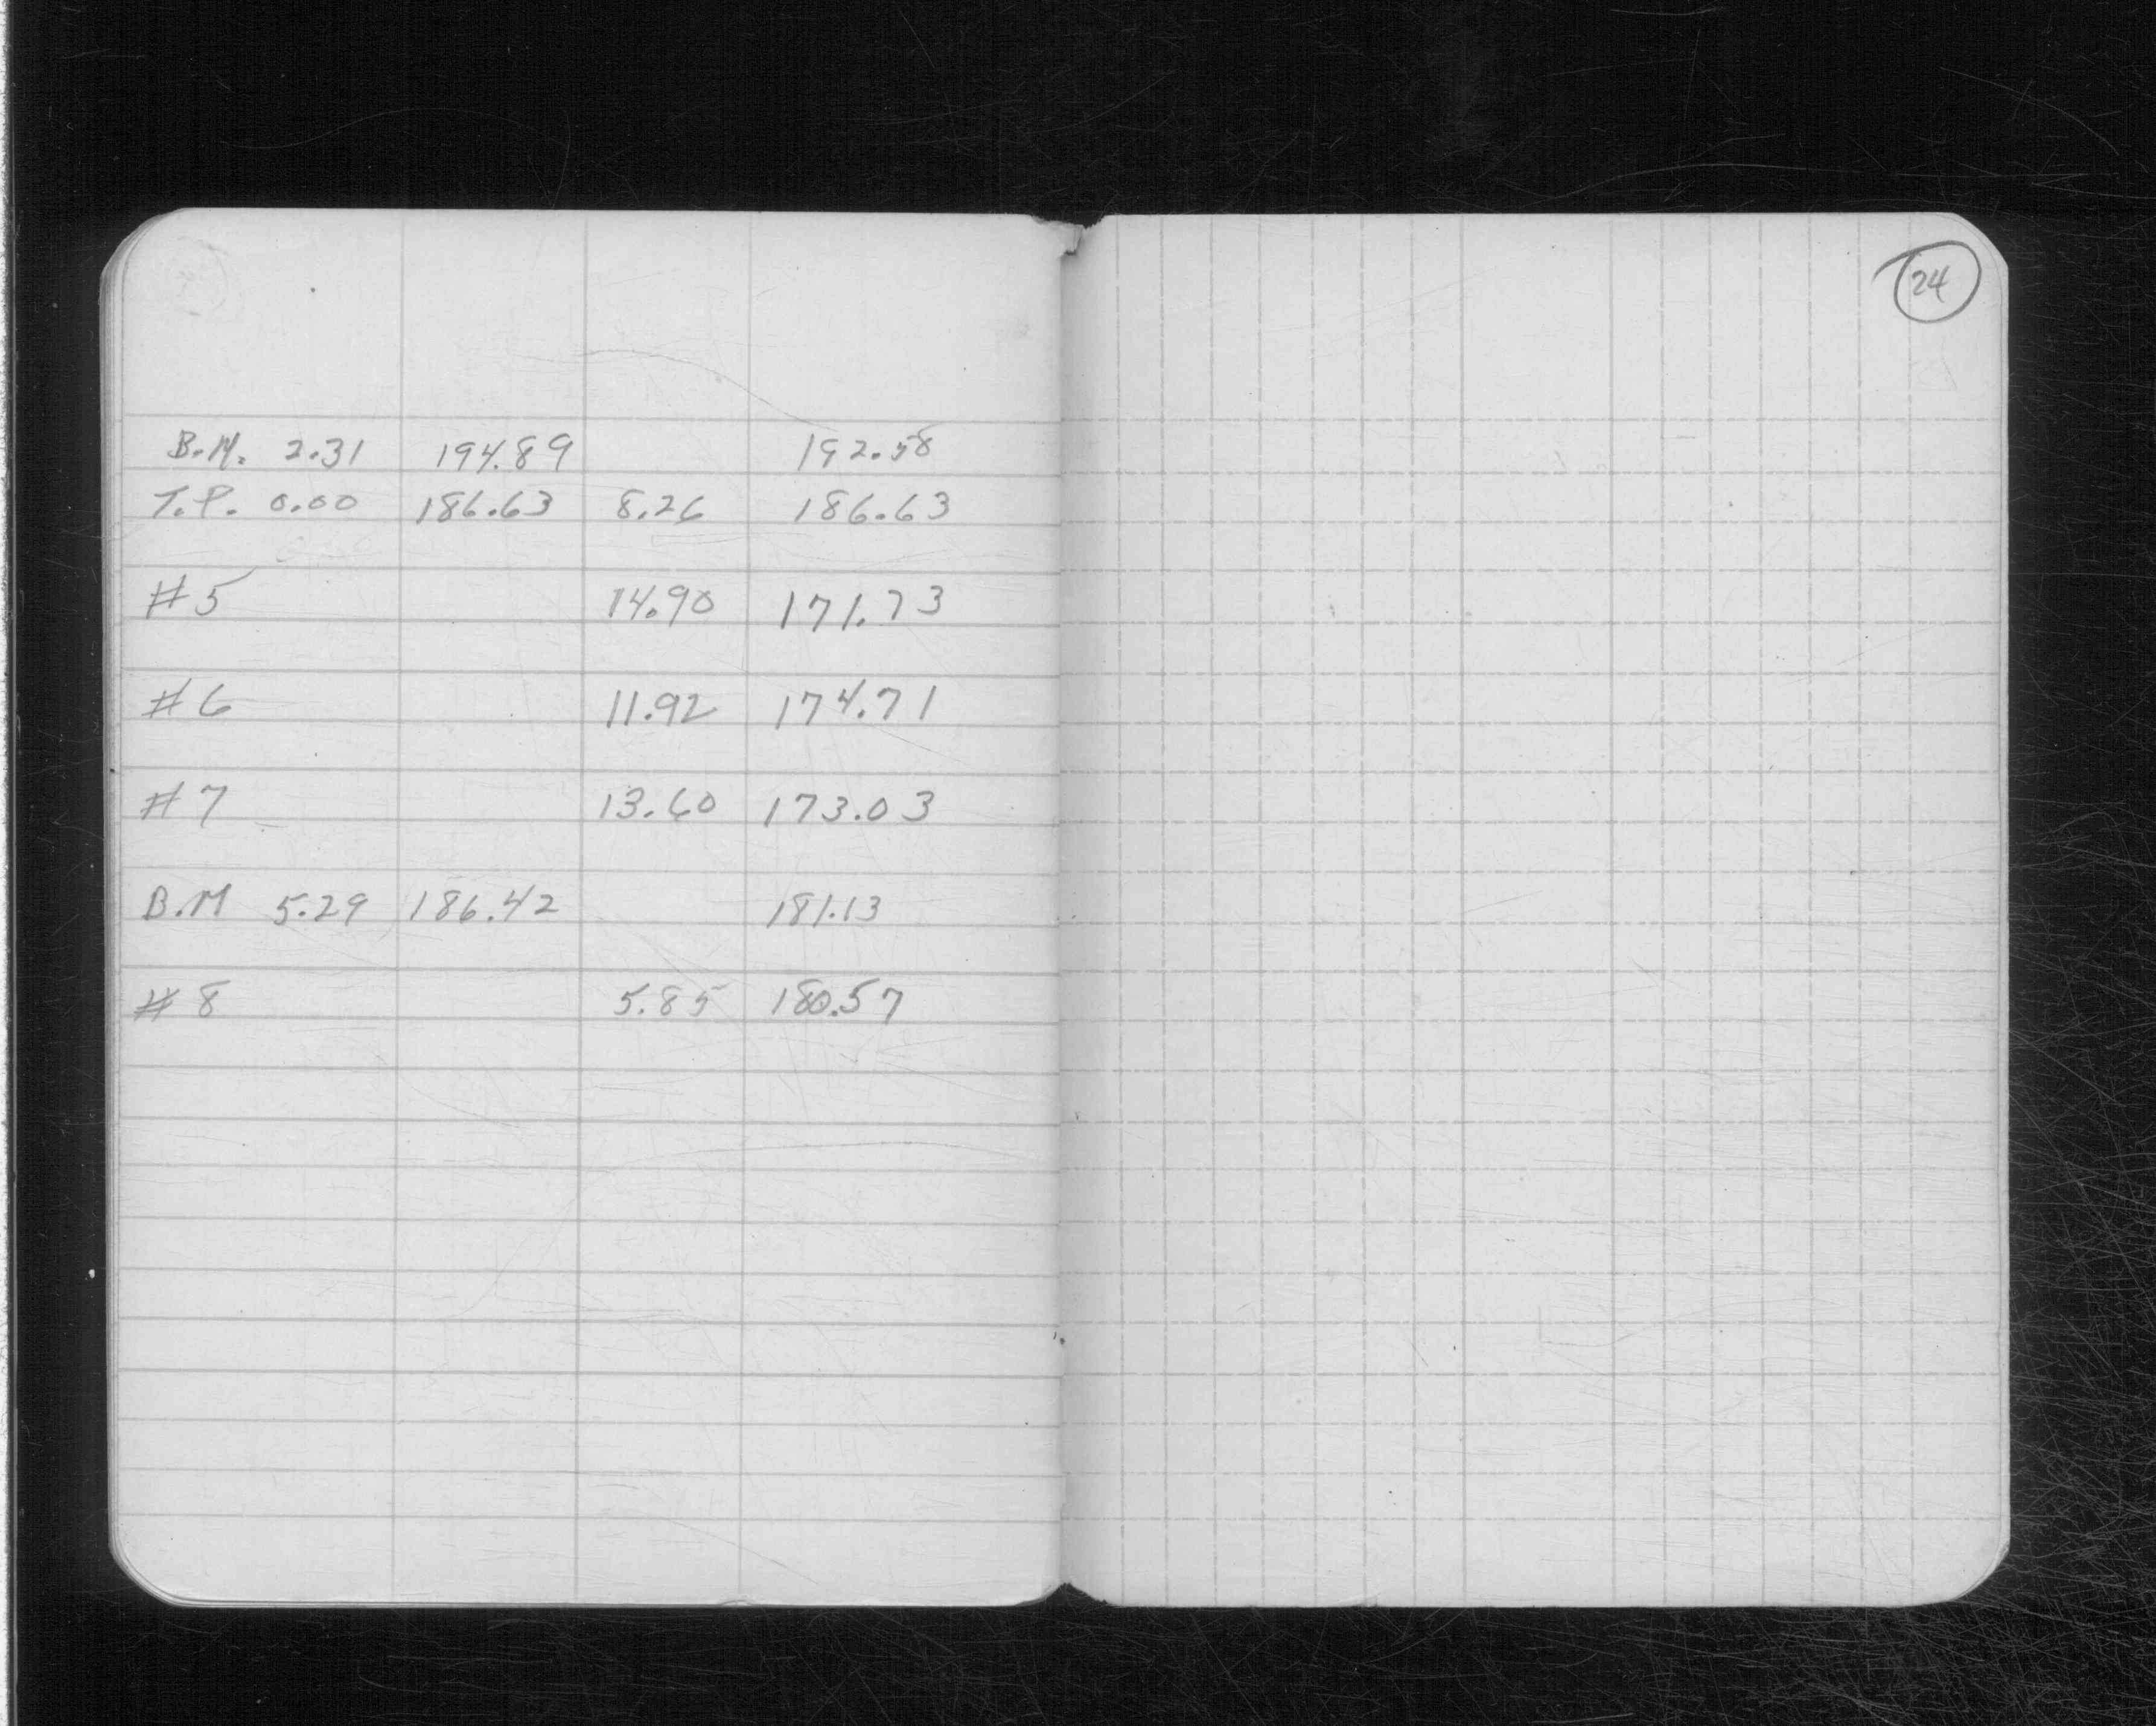 24
B.M. 2.31 194.89 192.58
T.P. 0.00 186.63 8.26 186.63
#5 14.90 171.73
#6 11.92 174.71
#7 13.60 173.03
B.M 5.29 186.42 181.13
#8 5.85 180.57